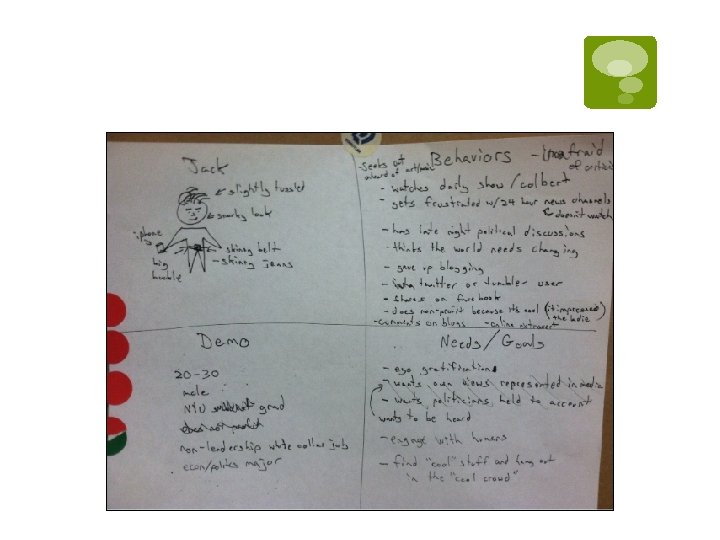 Jack
slightly tussled
snarky look
iphone
skinny belt
- skinny jeans
big
buckle
Behaviors
- unafraid
of critics
- Seeks out
art/music
- watches daily show / colbert
- gets frustrated w/ 24 hour news channels
doesn't watch
- has late night political discussions
- thinks the world needs changing
- gave up blogging
- twitter or tumbler user
- Shares on facebook
- does non-profit because its cool (it impresses)
the ladies
- comments on blogs - online extrovert
Demo
20-30
male
NYU grad
non-leadership white collar job
econ/politics major
Needs/Goals
- ego gratification
- wants own views represented in media
- wants politicians held to account
wants to be heard
- engage with humans
- find "cool" stuff and hang out
in the "cool crowd"